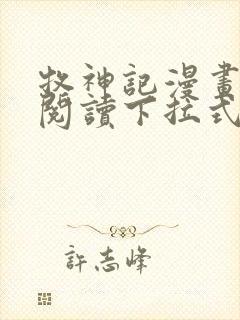 牧神記漫畫
閱讀下拉式
許志峰